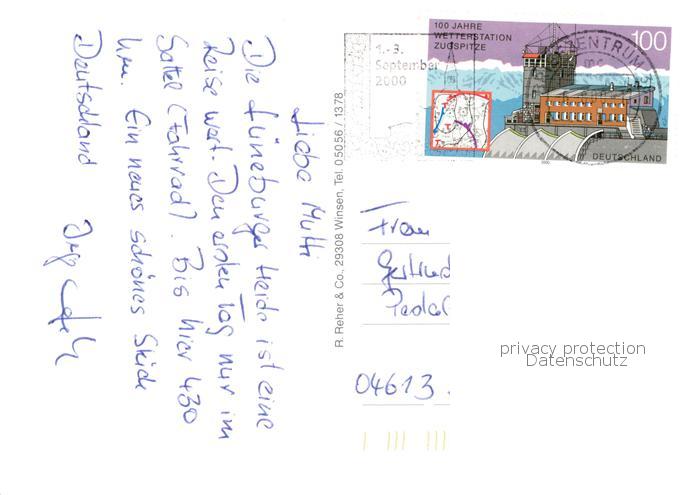 Liebe Mutti
Die Lüneburger Heide ist eine
Reise wert. Den ersten Tag nur im
Sattel (Fahrrad). Bis hier 430
km. Ein neues schönes Stück
Deutschland
R. Reher & Co., 29308 Winsen, Tel. 05056 / 1378
1.-3.
September
2000
100 JAHRE
WETTERSTATION
ZUGSPITZE
100
DEUTSCHLAND
BRIEFZENTRUM
Frau
Gertrud
04613
privacy protection
Datenschutz